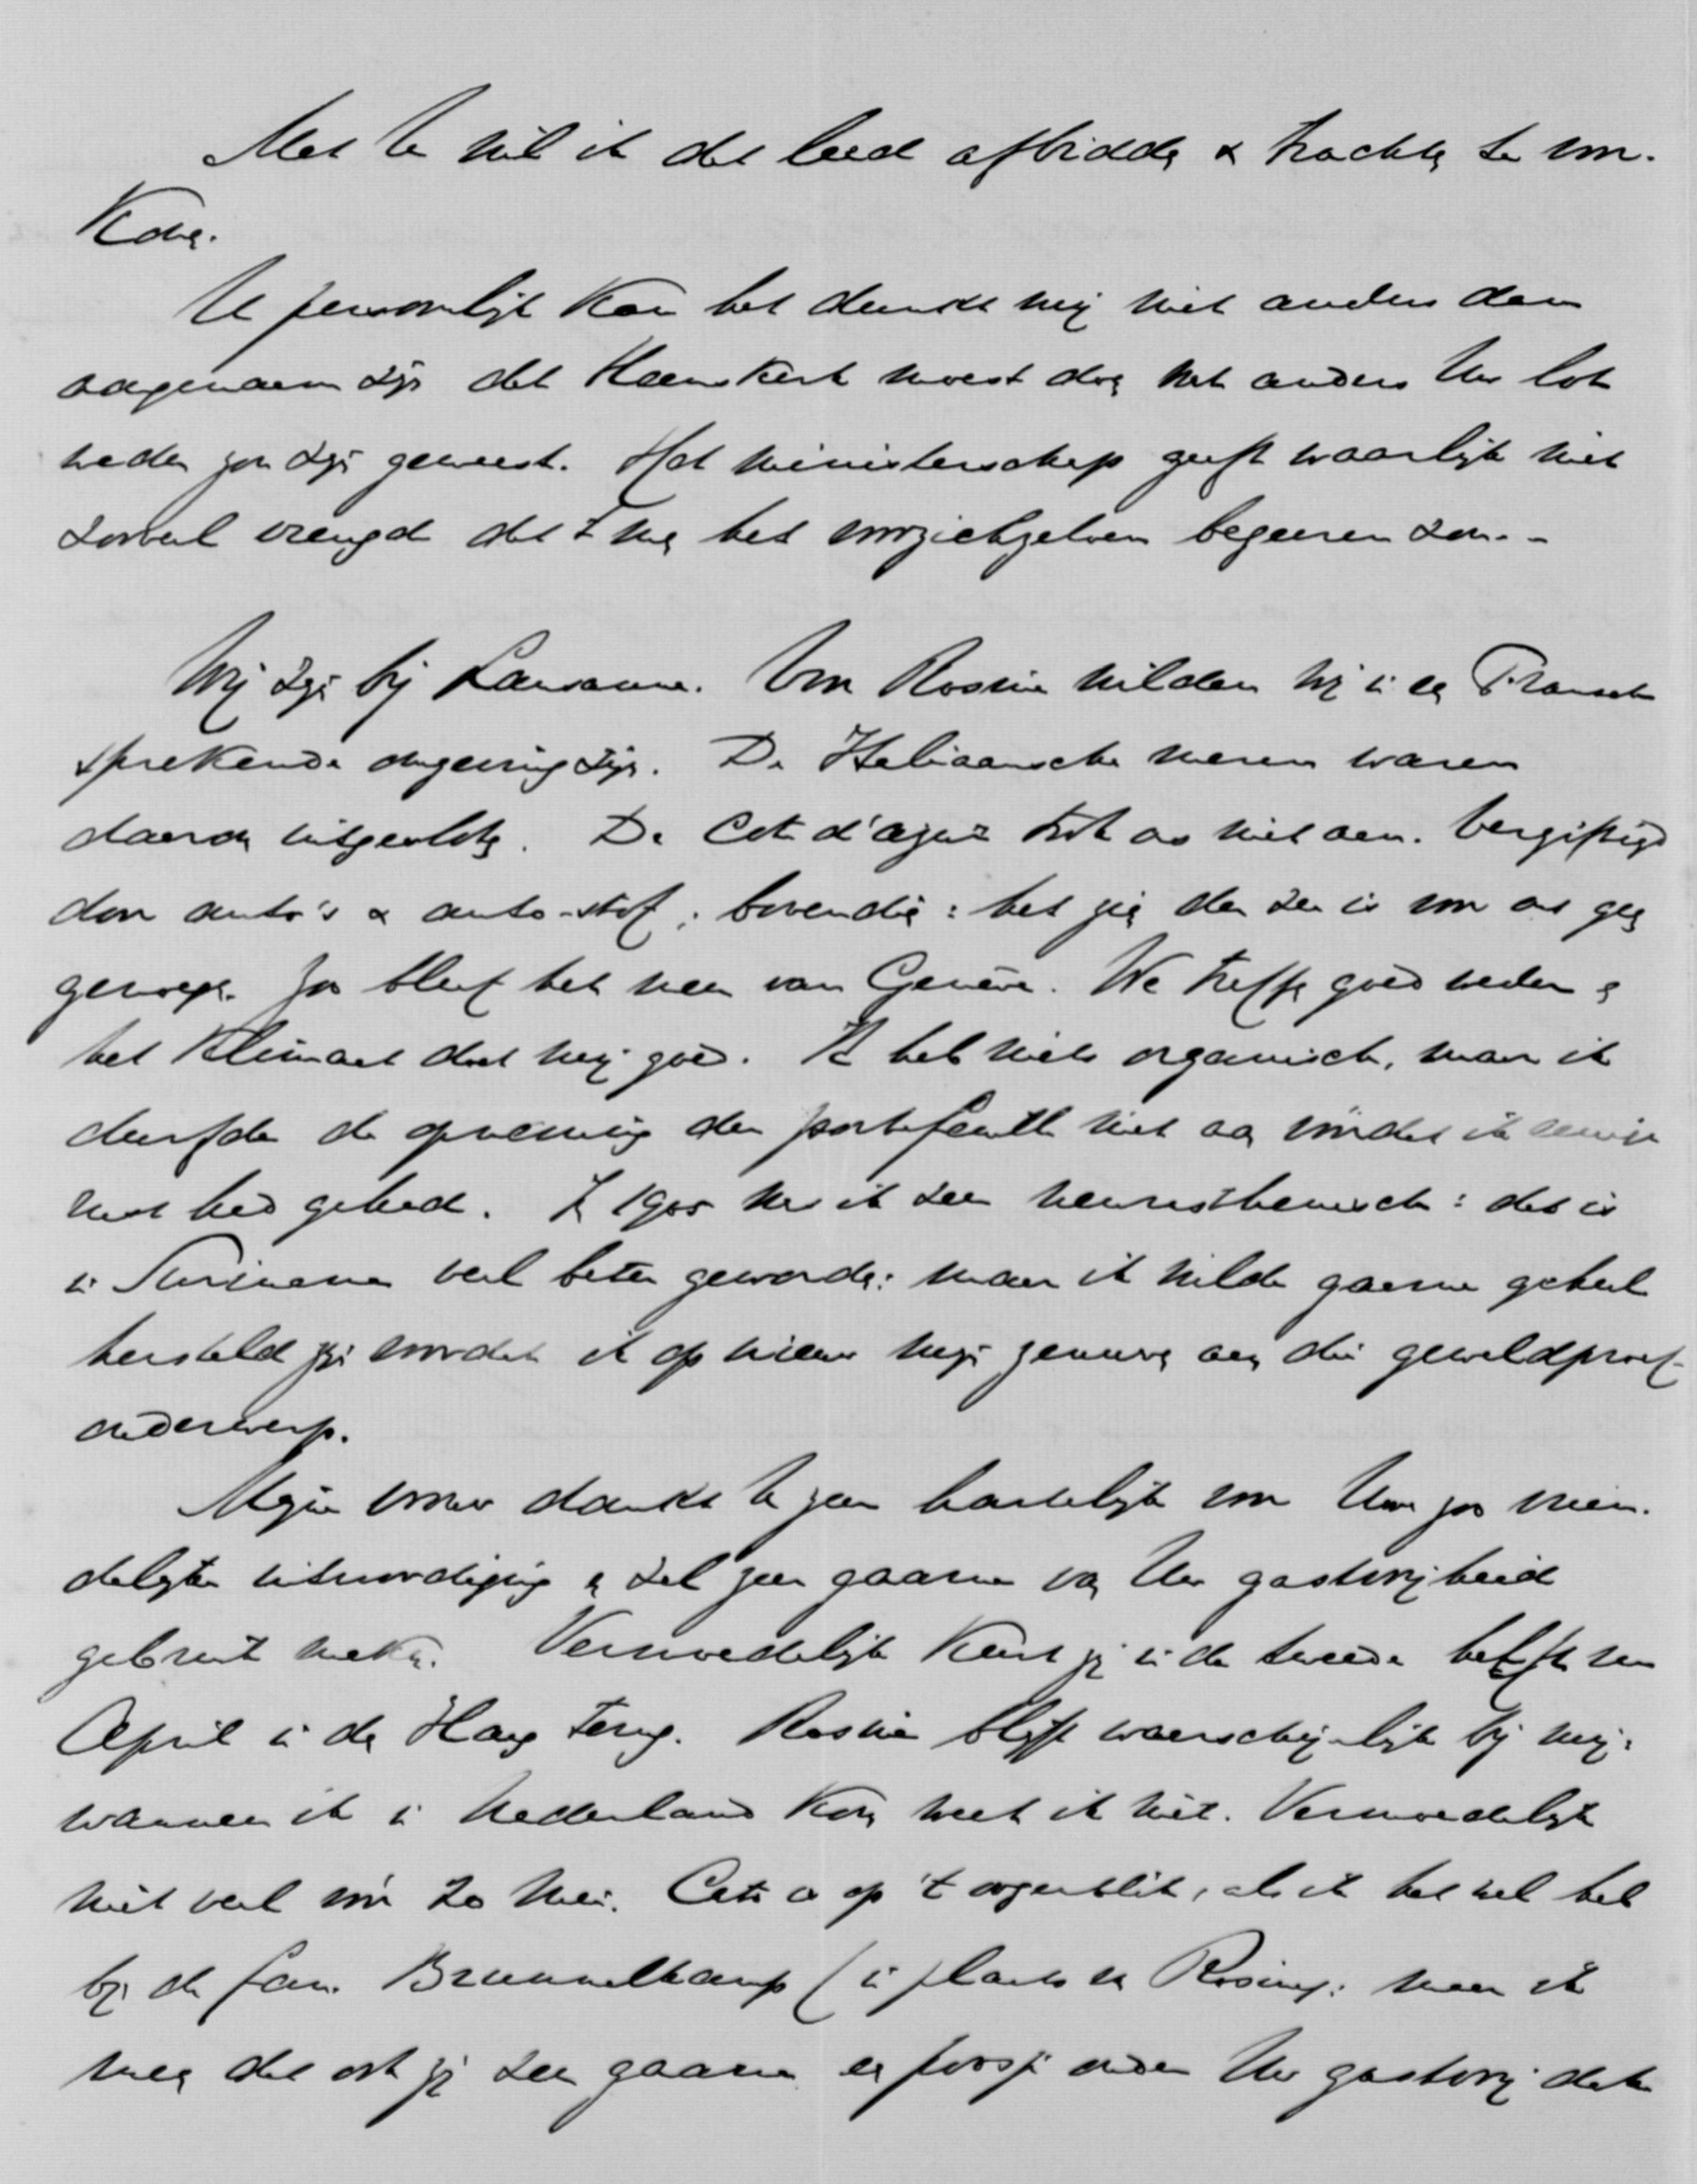 Met U wil ik dat leed afbidden & trachten te voor-
komen.
U persoonlijk kan het dunkt mij niet anders dan
aangenaam zijn dat Heemskerk moest doen wat anders Uw lot
weder zou zijn geweest. Het ministerschap geeft waarlijk niet
zooveel vreugd dat men het voor zichzelven begeeren zou. -
Wij zijn bij Lausanne. Voor Rosine wilden wij in een Fransch
sprekende omgeving zijn. De Italiaansche meren waren
daarom uitgesloten. De Cote d'azur trok ons niet aan. Vergiftigd
door auto's & auto-stof; bovendien: het zien der zee is voor ons geen
genoegen. Zoo bleef het meer van Genève. We treffen goed weder en
het klimaat doet mij goed. Ik heb niets organisch, maar ik
durfde de opneming der portefeuille niet aan vóórdat ik eenige
rust had gehad. In 1905 was ik zeer neurasthenisch: dat is
in Suriname veel beter geworden: maar ik wilde gaarne geheel
hersteld zijn voordat ik op nieuw mijn zenuwen aan die geweldproef
onderwerp.
Mijn vrouw dankt U zeer hartelijk voor Uwe zoo vrien-
delijke uitnoodiging en zal zeer gaarne van Uw gastvrijheid
gebruik maken. Vermoedelijk komt zij in de tweede helft van
April in den Haag terug. Rosine blijft waarschijnlijk bij mij:
wanneer ik in Nederland kom weet ik niet. Vermoedelijk
niet veel vóór 20 Mei. Cato is op 't oogenblik, als ik het wel heb
bij de fam. Brummelkamp (in plaats van Rosine): maar ik
meen dat ook zij zeer gaarne een poosje onder Uw gastvrij dak